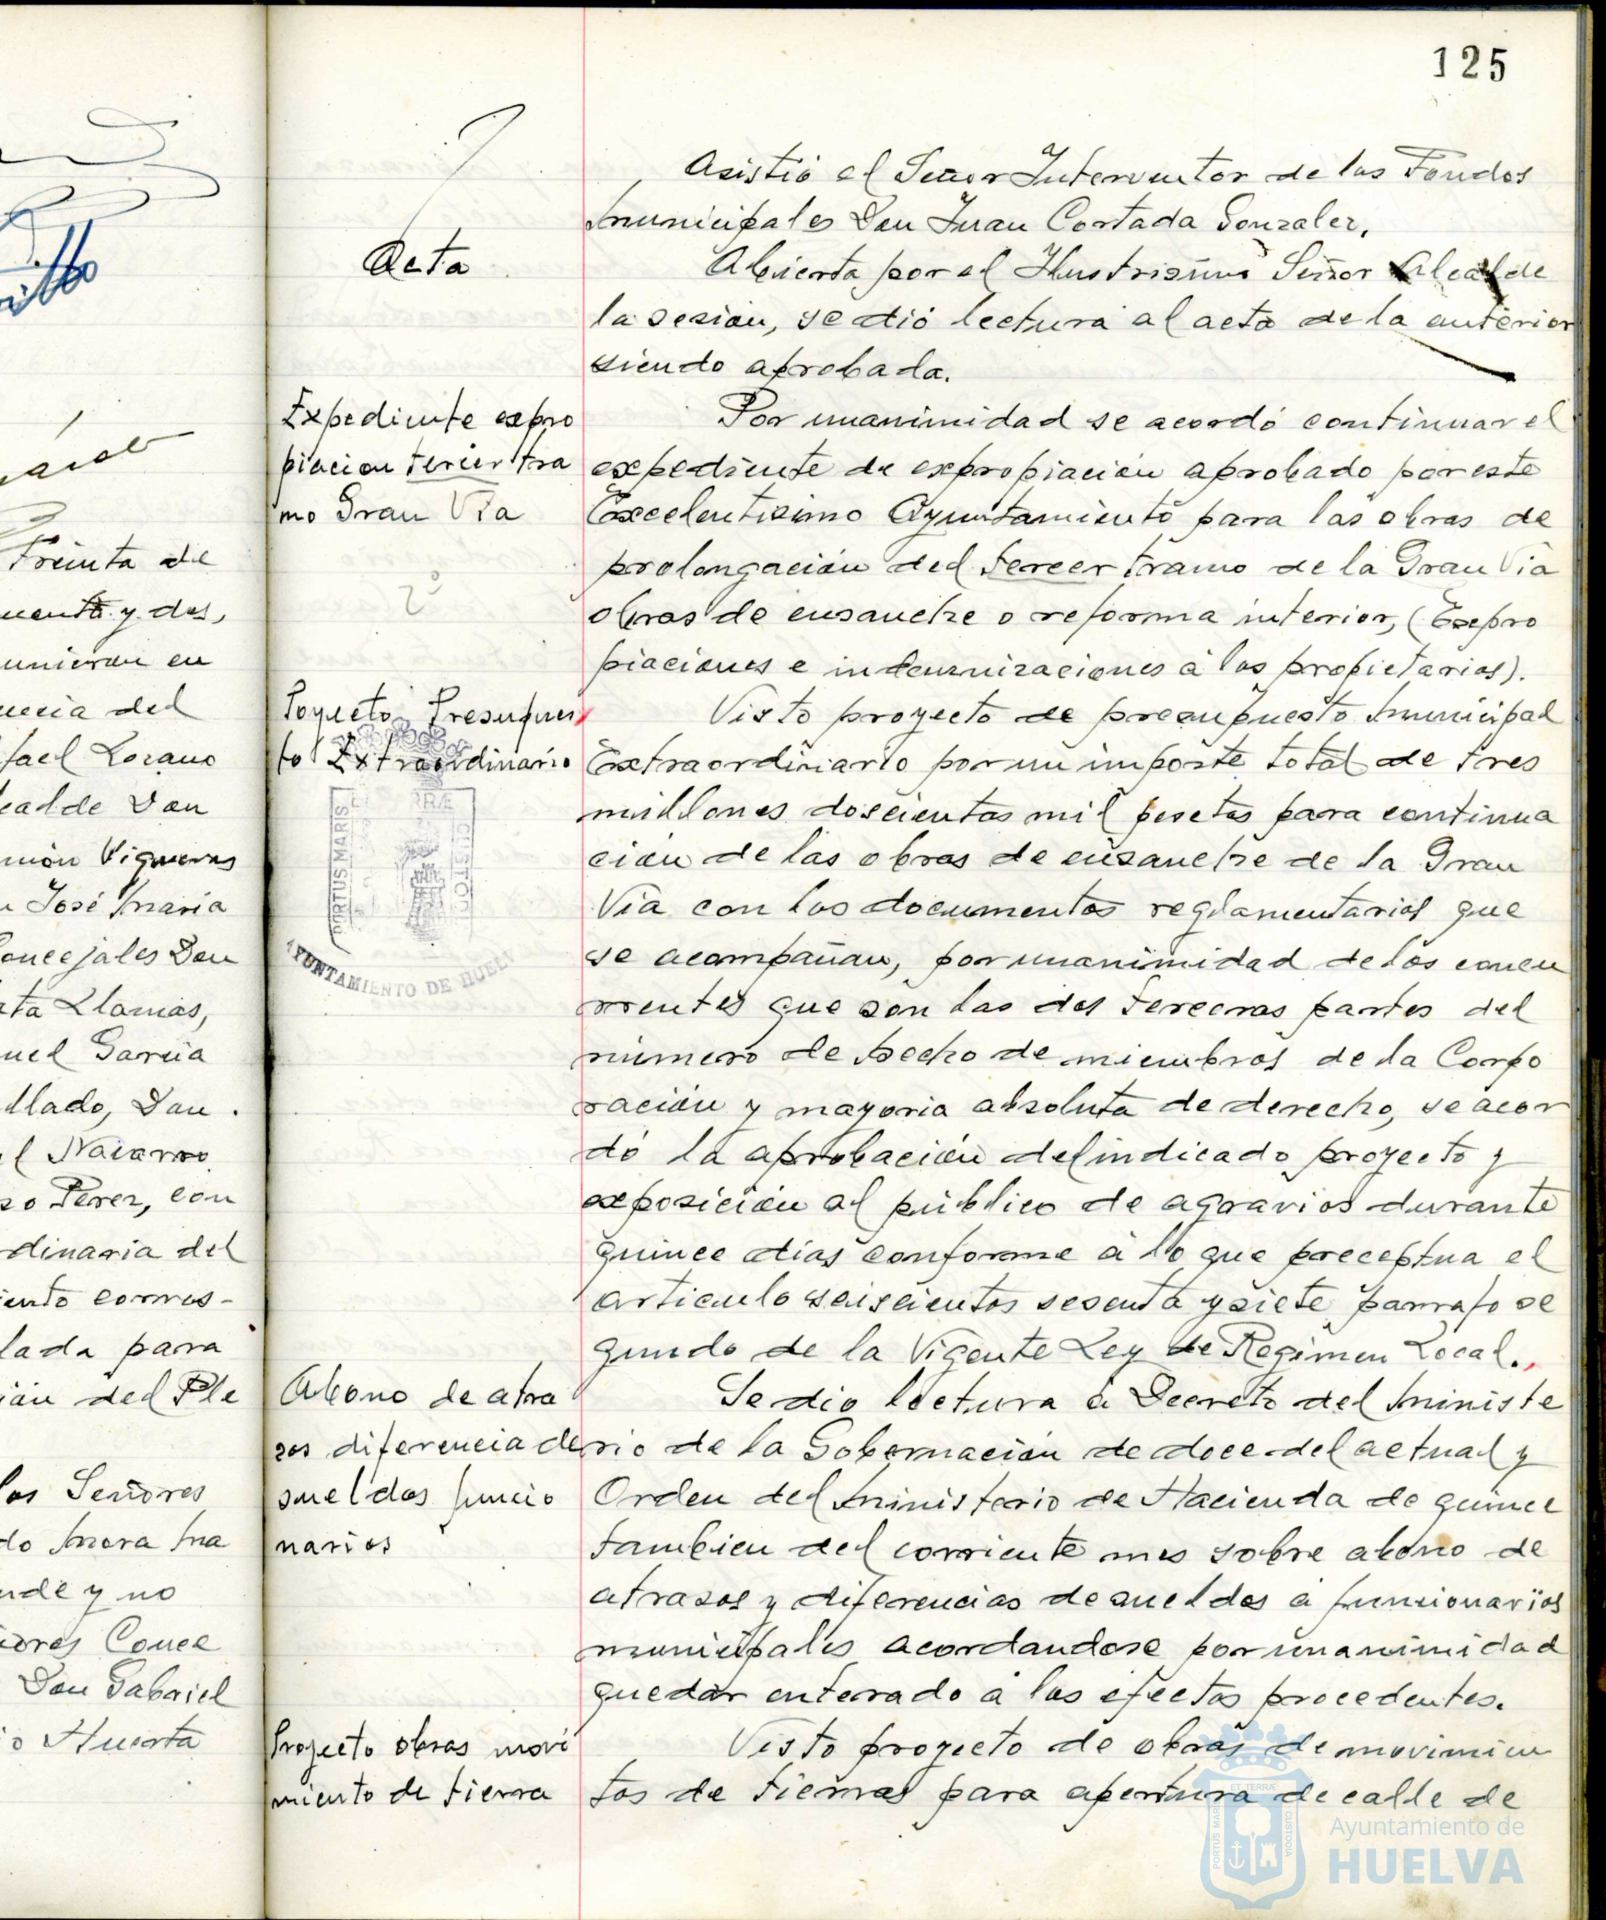 125
Asistió el Señor Interventor de los Fondos
municipales Don Juan Cortada Gonzalez,
Acta
Abierta por el Ilustrisimo Señor Alcalde
la sesión, se dió lectura al acta de la anterior
siendo aprobada.
Expediente expro
piacion tercer tra
mo Gran Via
2º
Por unanimidad se acordó continuar el
expediente de expropiación aprobado por este
Excelentisimo Ayuntamiento para las obras de
prolongación del tercer tramo de la Gran Via
obras de ensanche o reforma interior, (Expro
piaciones e indemnizaciones á los propietarios).
Poyecto Presupues
to Extraordinario
Visto proyecto de presupuesto municipal
Extraordinario por un importe total de tres
millones doscientas mil pesetas para continua
ción de las obras de ensanche de la Gran
Via con los documentos reglamentarios que
se acompañan, por unanimidad de los concu
rrentes que son las dos terceras partes del
número de hecho de miembros de la Corpo
ración y mayoria absoluta de derecho, se acor
dó la aprobación del indicado proyecto y
exposición al público de agravios durante
quince dias conforme á lo que preceptua el
articulo seiscientos sesenta y siete parrafo se
gundo de la Vigente Ley de Regimen Local.
PORTUS MARIS
ET TERRÆ
CUSTODIA
AYUNTAMIENTO DE HUELVA
Abono de atra
sos diferencia de
sueldos funcio
narios
Se dio lectura á Decreto del Ministe
rio de la Gobernación de doce del actual y
Orden del Ministerio de Hacienda de quince
tambien del corriente mes sobre abono de
atrasos y diferencias de sueldos á funcionarios
municipales acordandose por unanimidad
quedar enterado á los efectos procedentes.
Proyecto obras movi
miento de tierra
Visto proyecto de obras de movimien
tos de tierras para apertura de calle de
Treinta de
cuenta y dos,
unieron en
encia del
fael Lozano
calde Don
món Vigueras
n José Maria
Concejales Don
ta Llamas,
uel Garcia
llado, Don
l Navarro
so Perez, con
dinaria del
iento corres-
lada para
ión del Ple
los Señores
do Mora Ma
nde y no
iores Conce
Don Gabriel
o Huerta
PORTUS MARIS
ET TERRÆ
CUSTODIA
Ayuntamiento de
HUELVA